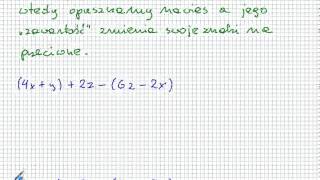 wtedy opuszczamy nawias a jego
„zawartość" zmienia swoje znaki na
przeciwne.
(4x+y)+2z-(6z-2x)